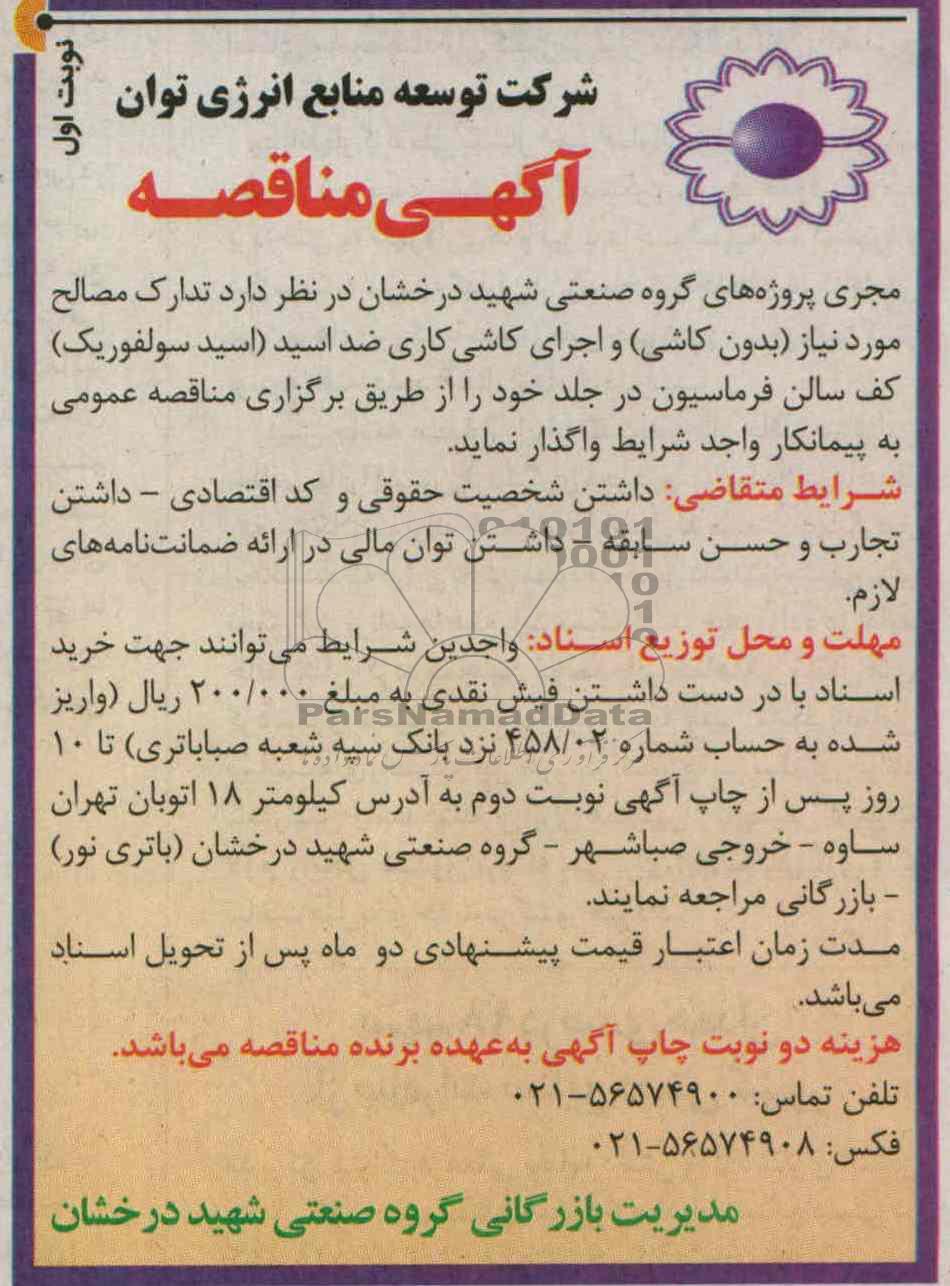 نوبت اول
شرکت توسعه منابع انرژی توان
آگهی مناقصه
مجری پروژه‌های گروه صنعتی شهید درخشان در نظر دارد تدارک مصالح
مورد نیاز (بدون کاشی) و اجرای کاشی‌کاری ضد اسید (اسید سولفوریک)
کف سالن فرماسیون در جلد خود را از طریق برگزاری مناقصه عمومی
به پیمانکار واجد شرایط واگذار نماید.
شرایط متقاضی: داشتن شخصیت حقوقی و کد اقتصادی – داشتن
تجارب و حسن سابقه – داشتن توان مالی در ارائه ضمانت‌نامه‌های
لازم.
مهلت و محل توزیع اسناد: واجدین شرایط می‌توانند جهت خرید
اسناد با در دست داشتن فیش نقدی به مبلغ ۲۰۰/۰۰۰ ریال (واریز
شده به حساب شماره ۴۵۸/۰۲ نزد بانک سپه شعبه صباباتری) تا ۱۰
روز پس از چاپ آگهی نوبت دوم به آدرس کیلومتر ۱۸ اتوبان تهران
ساوه - خروجی صباشهر - گروه صنعتی شهید درخشان (باتری نور)
- بازرگانی مراجعه نمایند.
مدت زمان اعتبار قیمت پیشنهادی دو ماه پس از تحویل اسناد
می‌باشد.
هزینه دو نوبت چاپ آگهی به‌عهده برنده مناقصه می‌باشد.
تلفن تماس: ۵۶۵۷۴۹۰۰-۰۲۱
فکس: ۵۶۵۷۴۹۰۸-۰۲۱
مدیریت بازرگانی گروه صنعتی شهید درخشان
ParsNamadData